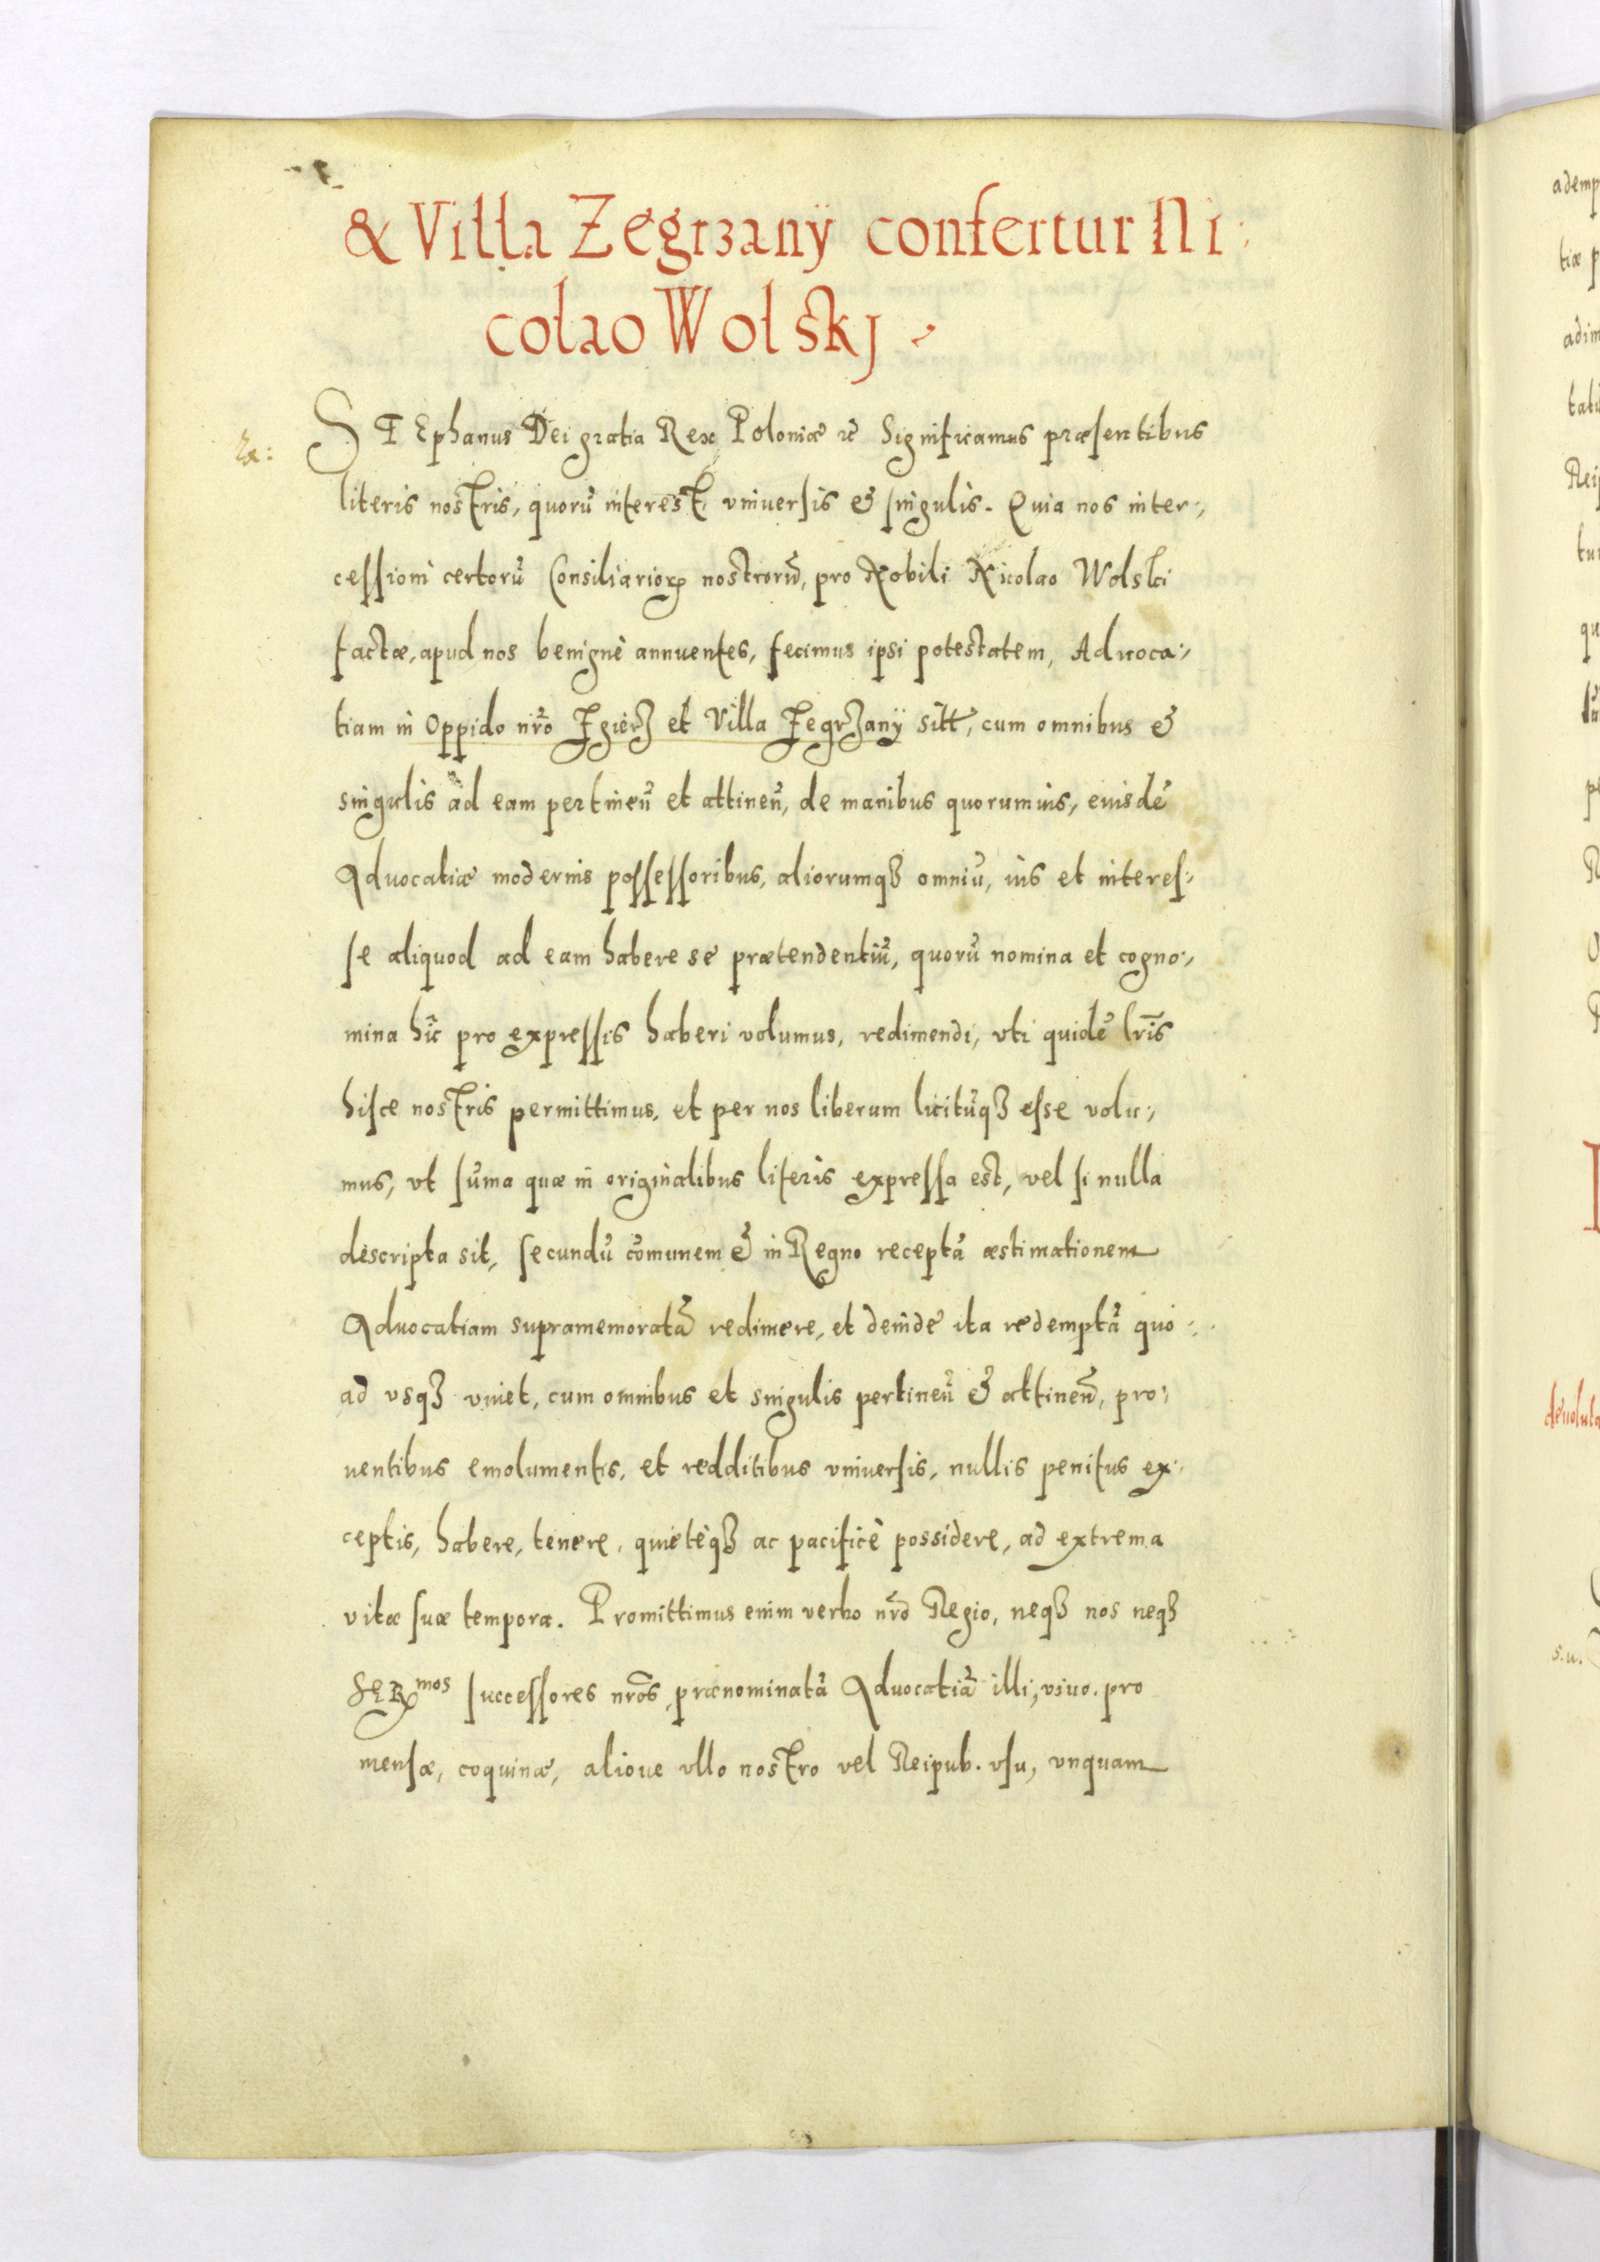 & Villa Zegrzanÿ confertur Ni:
colao Wolskj
Ex:
STEphanus Dei gratia Rex Poloniæ rc̃ Significamus præsentibus
literis nostris, quorũ interest, vniuersis & singulis. Quia nos inter:,
cessioni certorũ Consiliarioꝝ nostrorũ, pro Nobili Nicolao Wolski
factæ, apud nos benignè annuentes, fecimus ipsi potestatem, Aduoca:,
tiam in Oppido nr̃o Zgierz et Villa Zegrzanÿ sitt, cum omnibus &
singulis ad eam pertineñ et attineñ, de manibus quorumuis, eiusdẽ
Aduocatiæ modernis possessoribus, aliorumqȝ omniũ, ius et interes:,
se aliquod ad eam habere se prætendentiũ, quorũ nomina et cogno:,
mina hic pro expressis haberi volumus, redimendi, vti quidẽ lr̃is
hisce nostris permittimus, et per nos liberum licitũqȝ esse volu:,
mus, vt sũma quæ in originalibus literis expressa est, vel si nulla
descripta sit, secundũ cõmunem & in Regno receptã æstimationem
Aduocatiam supramemoratã redimere, et deinde ita redemptã quo:,
ad vsqȝ viuet, cum omnibus et singulis pertineñ & attineñ, pro:,
uentibus emolumentis, et redditibus vniuersis, nullis penitus ex:,
ceptis, habere, tenere, quietèqȝ ac pacificè possidere, ad extrema
vitæ suæ tempora. Promittimus enim verbo nr̃o Regio, neqȝ nos neqȝ
Serᵐᵒˢ successores nr̃os, prænominatã Aduocatiã illi, viuo, pro
mensæ, coquinæ, alioue vllo nostro vel Reipub. vsu, vnquam